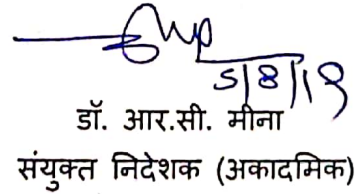 5/8/19
डॉ. आर.सी. मीना
संयुक्त निदेशक (अकादमिक)